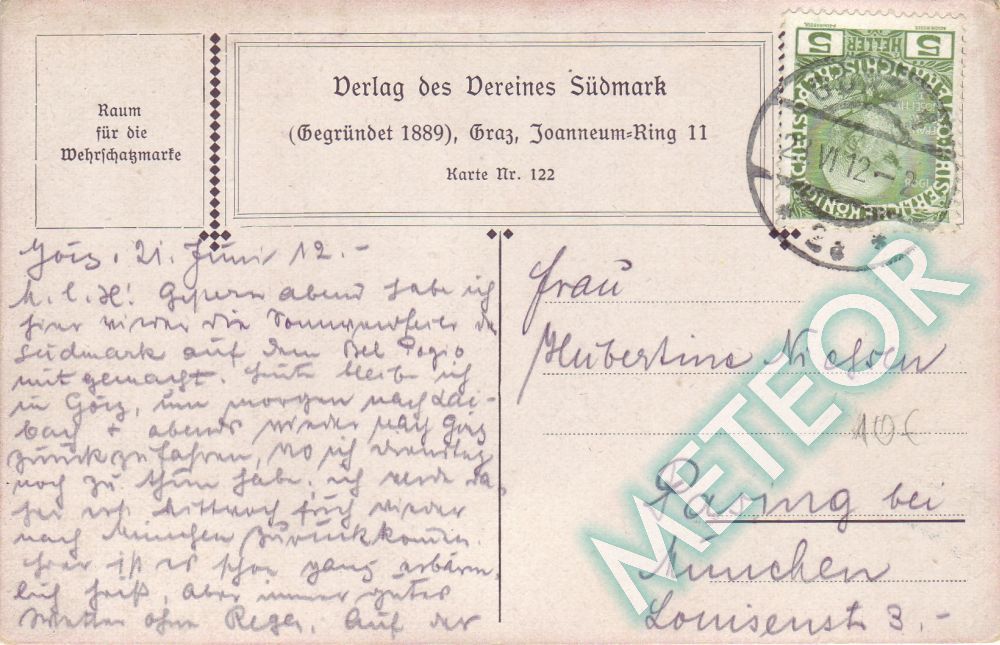 Raum
für die
Wehrschatzmarke
Verlag des Vereines Südmark
(Gegründet 1889), Graz, Joanneum-Ring 11
Karte Nr. 122
5 HELLER 5
VI 12
Görz, 21. Juni 12.-
M. l. H! Gestern abend habe ich
hier wieder die Sonnwendfeier der
Südmark auf dem Bel Pogio
mit gemacht. Heute bleibe ich
in Görz, um morgen nach Lai-
bach + abends wieder nach Görz
zurückzufahren, wo ich Dienstag
noch zu thun habe. ich werde da
her erst Mittwoch früh wieder
nach München zurückkommen.
Hier ist es schon ganz erbärm
lich heiß, aber immer gutes
Wetter ohne Regen. Auf der
Frau
Hubertine Nielsen
110€
Pasing bei
München
Louisenst 3.-
METEOR